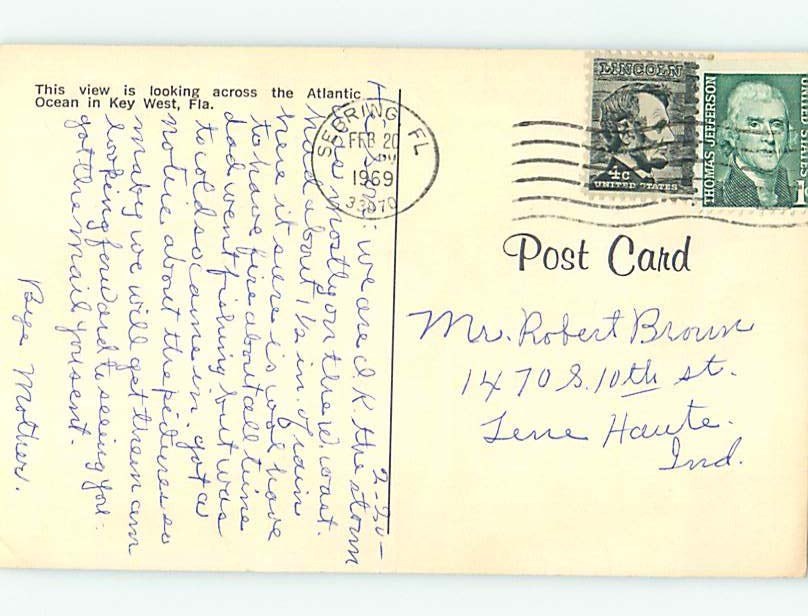 This view is looking across the Atlantic
Ocean in Key West, Fla.
2-20-
Hi Sons: we are O.K. the storm
was mostly on the W coast.
had about 1/2 in. of rain
here it sure is cool have
to have fire about all time
dad went fishing but was
to cold so came in. got a
notice about the pictures so
maby we will get them am
looking forward to seeing you.
got the mail you sent.
Bye Mother.
SEBRING FL
FEB 20
PM
1969
33870
LINCOLN
4c
UNITED STATES
THOMAS JEFFERSON
Post Card
Mr. Robert Brown
1470 S. 10th st.
Terre Haute.
Ind.